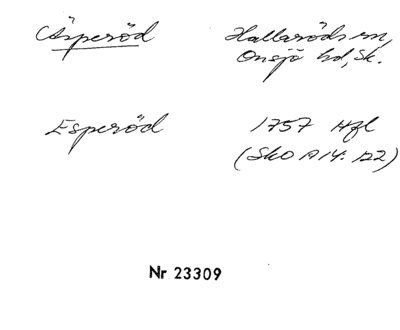 (Äsperöd Hallaröds sn,
Onsjö hd, Sk.
Esperöd 1757 Hfl
(SkO A 14: 122)
Nr 23309